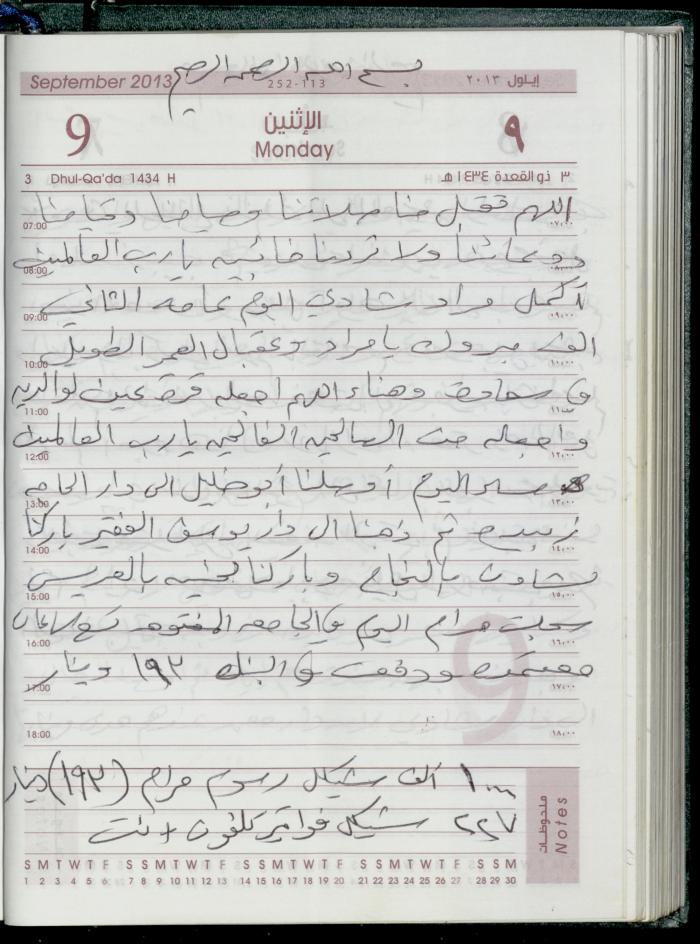 بسم الله الرحمن الرحيم
September 2013 252-113 إيلول ٢٠١٣
9 الإثنين ٩
Monday
3 Dhul-Qa'da 1434 H ٣ ذو القعدة ١٤٣٤ هـ
اللهم تقبل منا صلاتنا وصيامنا وقيامنا
07:00 ٠٧:٠٠
ودعائنا ولا تردنا خائبين يارب العالمين
08:00 ٠٨:٠٠
أكمل مراد شادي اليوم عامه الثاني
09:00 ٠٩:٠٠
الف مبروك يا مراد وعقبال العمر الطويل
10:00 ١٠:٠٠
في سعادة وهناء اللهم اجعله قرة عين لوالديه
11:00 ١١:٠٠
واجعله من الصالحين الفالحين يارب العالمين
12:00 ١٢:٠٠
اليوم أوصلنا أبو خليل الى دار الحاجه
13:00 ١٣:٠٠
زبيده ثم ذهبنا ال دار يوسف الفقير باركنا
14:00 ١٤:٠٠
بالنجاح وباركنا بالعريس
15:00 ١٥:٠٠
سجلت مرام اليوم في الجامعه المفتوحه تسع ساعات
16:00 ١٦:٠٠
معتمده ودفعت في البنك ١٩٣ دينار
17:00 ١٧:٠٠
9
18:00 ١٨:٠٠
١٠٠٠ ألف شيكل رسوم مرام (١٩٣) دينار
٢٢٧ شيكل فواتير تلفون + نت
ملاحظات Notes
S M T W T F S S M T W T F S S M T W T F S S M T W T F S S M
1 2 3 4 5 6 7 8 9 10 11 12 13 14 15 16 17 18 19 20 21 22 23 24 25 26 27 28 29 30